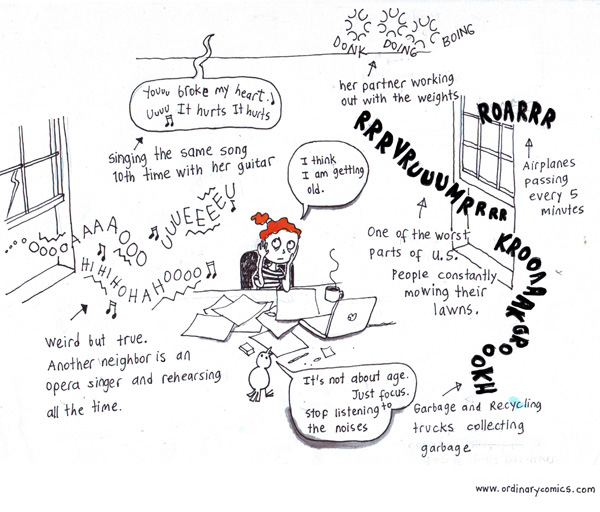 DONK DOING BOING
her partner working
out with the weights
Youuu broke my heart.
uuuu It hurts It hurts
Singing the same song
10th time with her guitar
I think
I am getting
old.
ROARRR
Airplanes
passing
every 5
minutes
RRRVRUUUMRRRR
One of the worst
parts of U.S.
People constantly
mowing their
lawns.
UUUEEEEU
OOOOAAAAAOOO
HIHIHOHAHOOOO
KROOAAAAKGRO
OOKH
Weird but true.
Another neighbor is an
opera singer and rehearsing
all the time.
It's not about age.
Just focus.
Stop listening to
the noises
Garbage and Recycling
trucks collecting
garbage
www.ordinarycomics.com